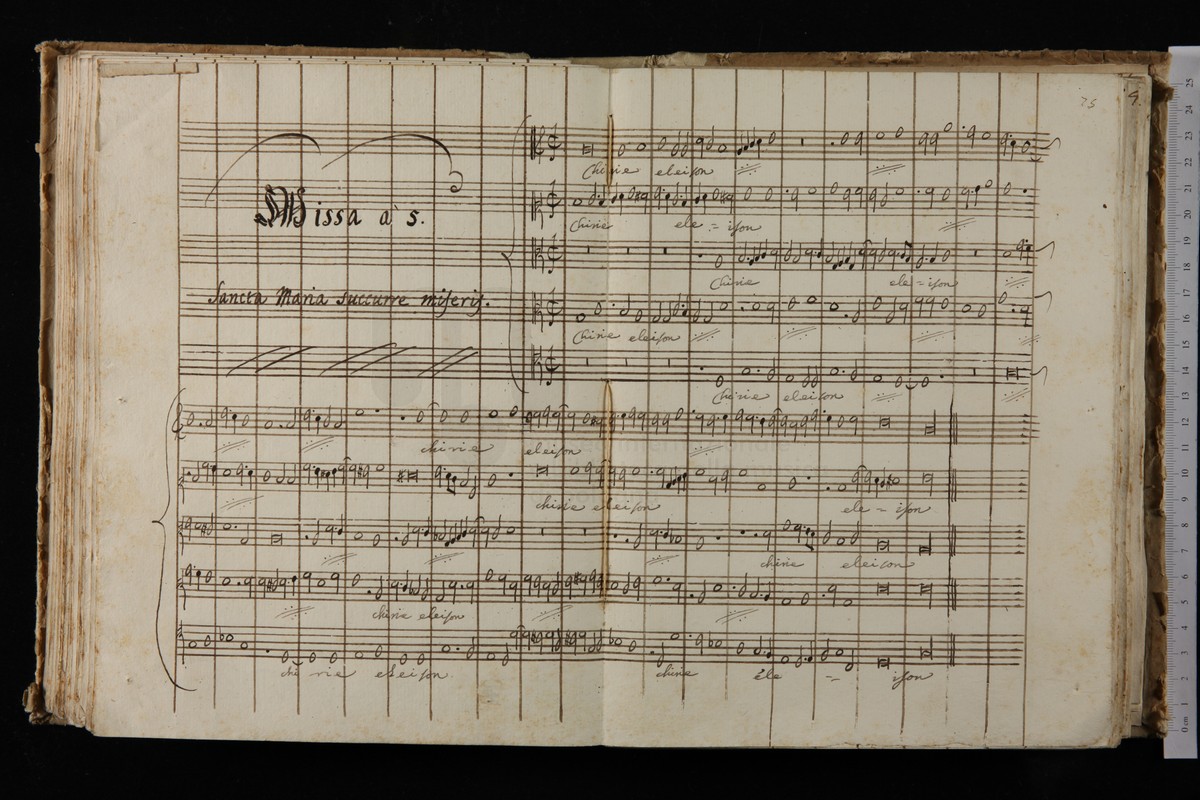 25 9.
Missa à 5.
Sancta Maria succurre miseris.
Chirie eleison
Chirie ele = ison
Chirie ele = ison
Chirie eleison
Chirie eleison
chirie eleison
chirie eleison ele = ison
chirie eleison
chirie eleison
chi rie eleison chirie ele = ison
25
24
23
22
21
20
19
18
17
16
15
14
13
12
11
10
9
8
7
6
5
4
3
2
1
0 cm